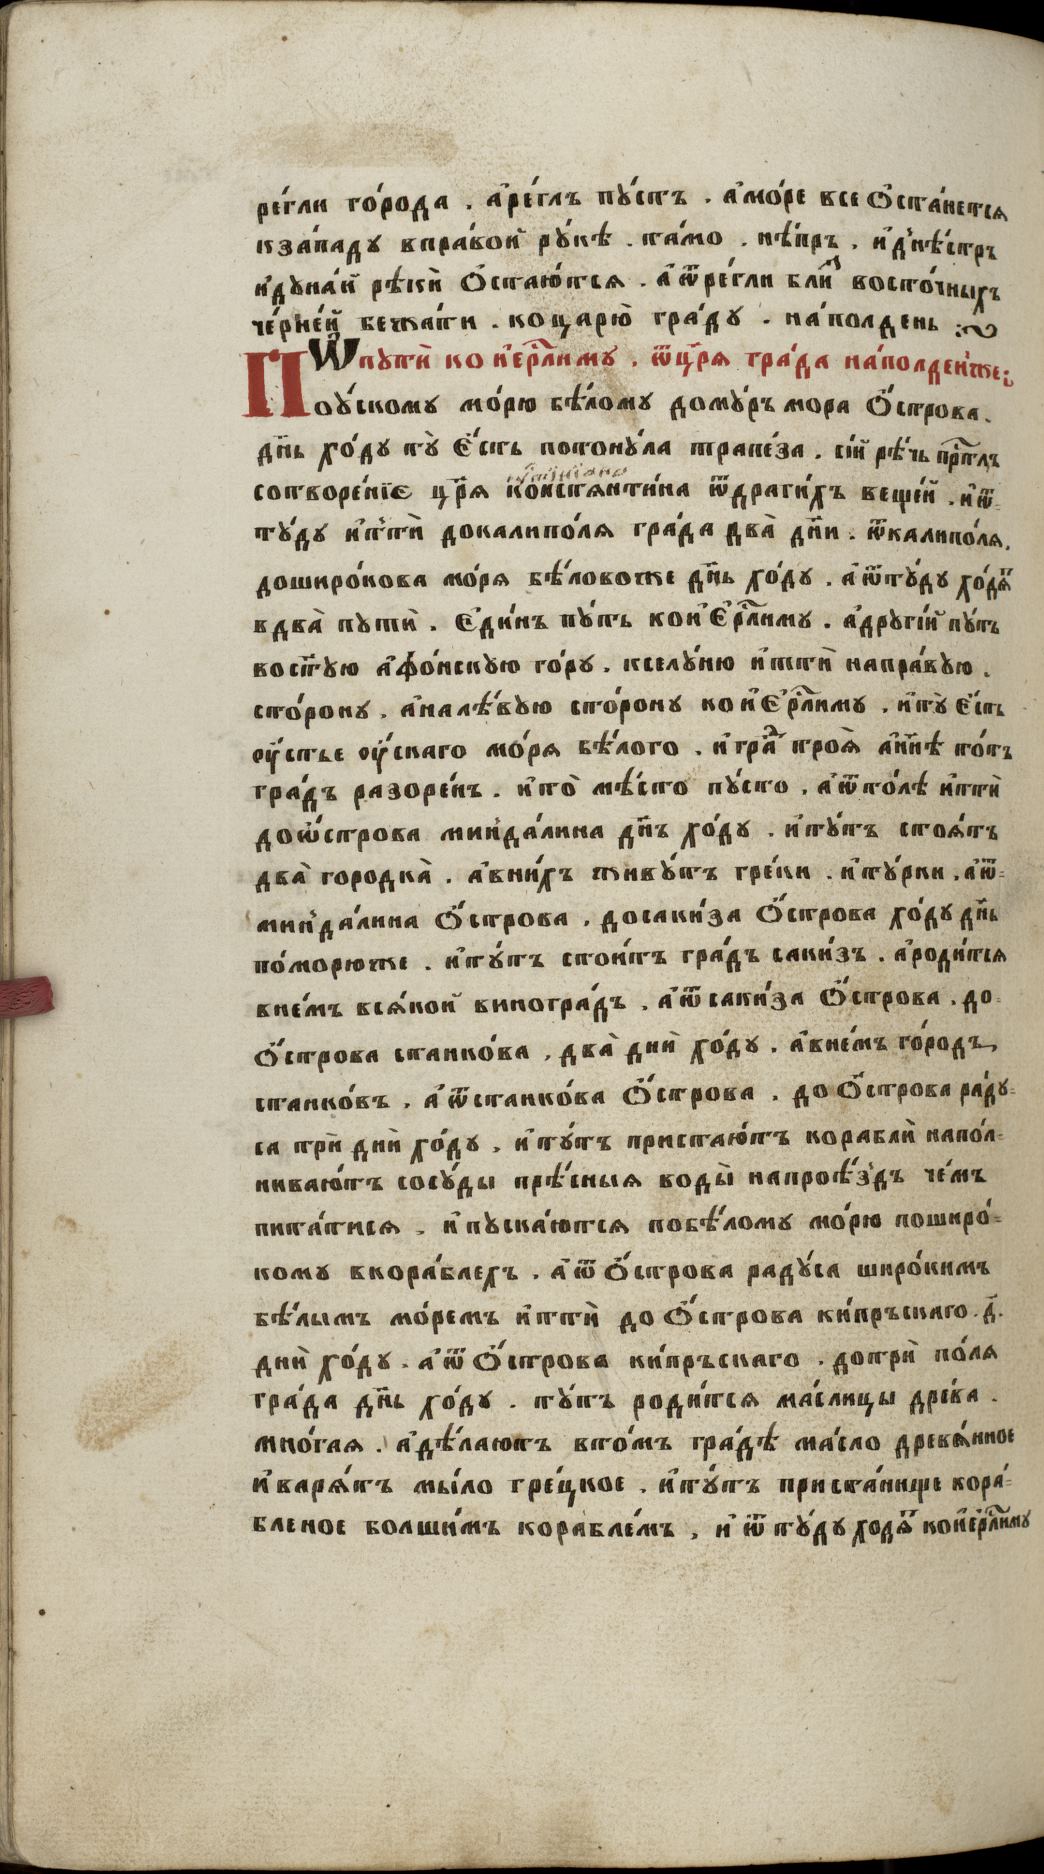 ре́гли го́рода . а҆ре́глъ пу́стъ . а҆мо́ре все ѻ҆ста́нется
кза́паду впра́вой ру́кѣ . та́мо . нѣ́пръ . и҆днѣ́стръ
и҆дуна́й рѣ́ки ѻ҆стаю́тся . а҆ѿре́гли бли́ восто́чныхъ
че́рне́й бежа́ти . коцарю̀ гра́ду . на́полдень
Ѡпутѝ ко і҆ер҇ли́му . ѿцр҃я гра́да на́полдень́же
Поу́скому мо́рю бѣ́лому дому́ръ мора ѻ҆́строва .
дн҃ь хо́ду ту̀ є҆́сть потону́ла трапе́за . сі́й рѣ́чь прⷭ҇то́лъ
сотворе́нїе цр҃я константи́на ѿдраги́хъ веще́й . и҆ѿ=
ту́ду и҆тти̑ докалипо́ля гра́да два̀ дн҃и . ѿкалипо́ля .
доширо́кова мо́ря бѣ́ловоже дн҃ь хо́ду . а҆ѿту́ду хо́дѧⷮ
вдва̀ пути̑ . є҆ди́нъ пу́ть кои҆є҆рⷭ҇ли́му . а҆другі́й пу́ть
вост҃ую а҆ѳо́нскую го́ру . кселу́ню и҆тти̑ напра́вую .
сто́рону . а҆налѣ́вую сто́рону кои҆є҆рⷭ҇ли́му . и҆ту̀ є҆́сть
оу҆́стье оу҆́скаго мо́ря бѣ́лого . и҆гра́ⷣ троя̀ а҆нн҃ѣ то́тъ
гра́дъ разоре́нъ . и҆то̀ мѣ́сто пу́сто . а҆ѿто́лѣ и҆тти̑
доѡ҆́строва минда́лина дн҃ь хо́ду . и҆ту́тъ стоя́тъ
два̀ городка̀ . а҆вни́хъ живу́тъ гре́ки . и҆ту́рки . а҆ѿ=
минда́лина ѻ҆́строва . досаки́за ѻ҆́строва хо́ду дн҃ь
по́морюже . и҆ту́тъ стои́тъ гра́дъ саки́зъ . а҆роди́тся
вне́мъ вся́кой виногра́дъ . а҆ѿсаки́за ѻ҆́строва . до=
ѻ҆́строва станко́ва , два̀ дни̑ хо́ду . а҆вне́мъ го́родъ
станко́въ . а҆ѿстанко́ва ѻ҆́строва . до ѻ҆́строва ра́ду=
са три̑ дни̑ хо́ду . и҆ту́тъ пристаю́тъ корабли̑ напо́л=
ниваю́тъ сосу́ды прѣ́сныя воды̀ напроѣ́здъ че́мъ
пита́тися . и҆пуска́ются побѣ́лому мо́рю поширо́=
кому вкора́блехъ . а҆ѿ ѻ҆́строва раду́са широ́кимъ
бѣ́лымъ мо́ремъ и҆тти̑ до ѻ҆́строва ки́пръскаго . д҃.
дни̑ хо́ду . а҆ѿ ѻ҆́строва ки́пръскаго . дотри̑ по́ля
гра́да дн҃ь хо́ду . ту́тъ роди́тся ма́слицы дре́ва .
мно́гая . а҆дѣ́лаютъ вто́мъ гра́дѣ ма́сло древя́нное
и҆варя́тъ мы́ло гре́цкое . и҆ту́тъ приста́нище кора́=
бленое болши́мъ корабле́мъ , и҆ ѿту́ду ходѧⷮ кои҆є҆рⷭ҇ли́му